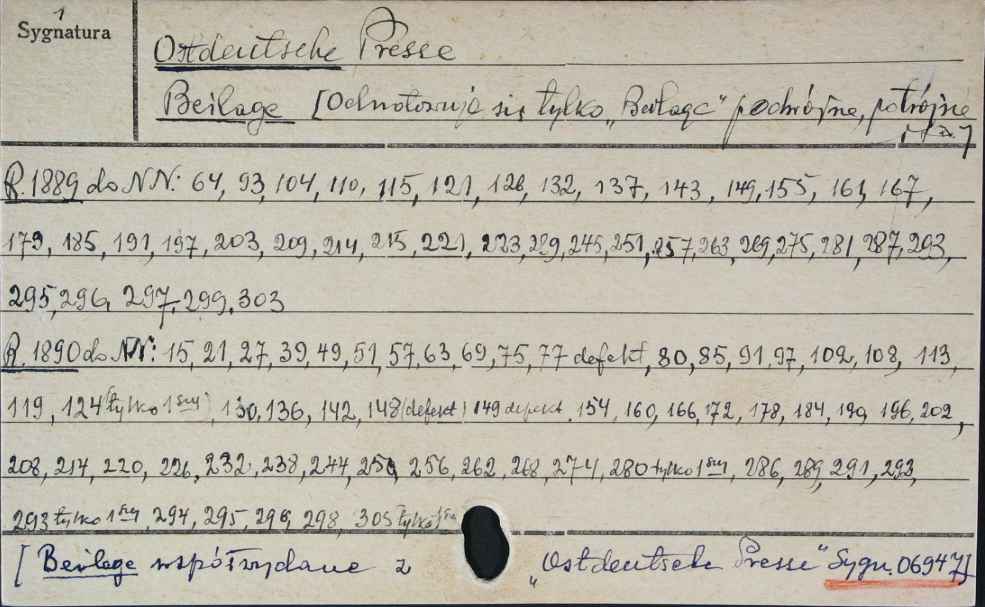 1
Sygnatura
Ostdeutsche Presse
Beilage [Odnotowuję się tylko „Beilage" podwójne, potrójne
i t.d.]
R. 1889 do NN: 64, 93, 104, 110, 115, 121, 126, 132, 137, 143, 149, 155, 161, 167,
179, 185, 191, 197, 203, 209, 214, 215, 221, 223, 229, 245, 251, 257, 263, 269, 275, 281, 287, 293,
295, 296, 297, 299, 303
R. 1890 do NN: 15, 21, 27, 39, 49, 51, 57, 63, 69, 75, 77 defekt, 80, 85, 91, 97, 102, 108, 113,
119, 124 (tylko 1 szy) 130, 136, 142, 148 (defekt) 149 defekt. 154, 160, 166, 172, 178, 184, 190, 196, 202,
208, 214, 220, 226, 232, 238, 244, 250, 256, 262, 268, 274, 280 tylko 1 szy, 286, 289, 291, 293,
293 tylko 1 szy, 294, 295, 296, 298, 305 tylko
[Beilage współwydane z „Ostdeutsche Presse" Sygn. 06947]